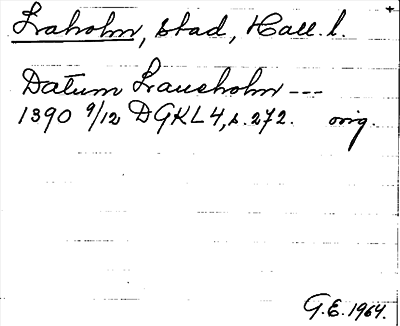 Laholm, stad, Hall. l.
Datum Lauesholm ---
1390 9/12 DGKL 4, s. 272. orig.
G.E. 1964.